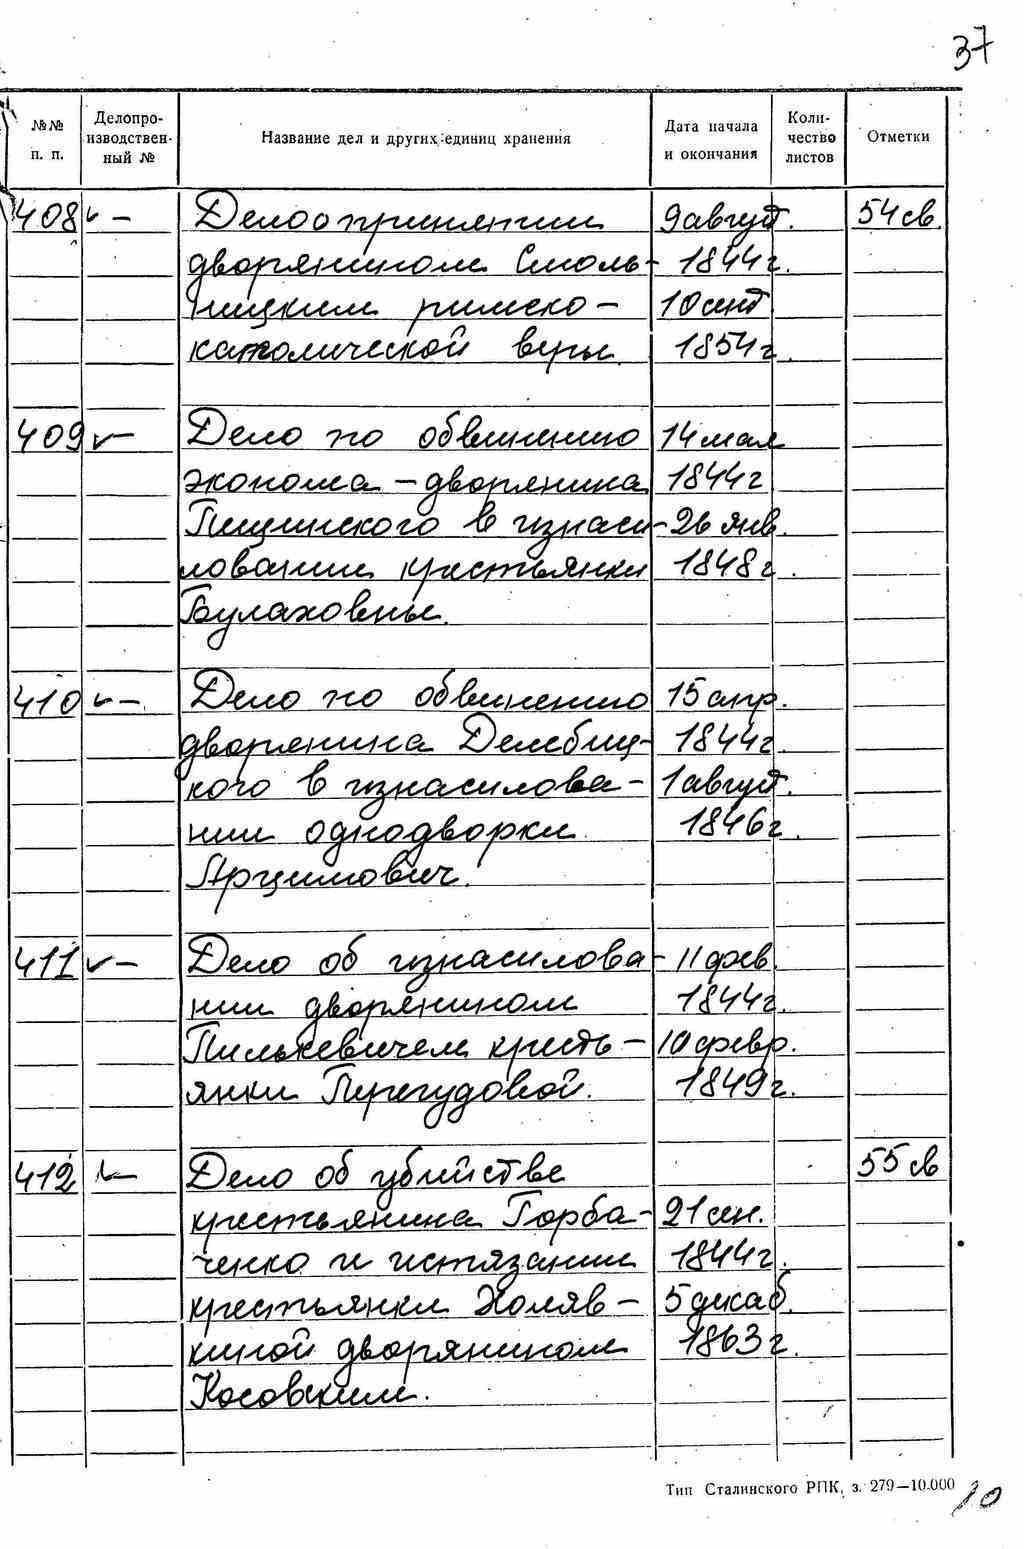 37
№№ п. п. Делопроизводственный № Название дел и других единиц хранения Дата начала и окончания Количество листов Отметки
408 – Дело о принятии 9 август. 54 св.
дворянином Смоль- 1844 г.
ницким римско- 10 сент
католической веры 1854 г.
409 – Дело по обвинению 14 мая
эконома – дворянина 1844 г
Пищинского в изнаси- 26 янв.
ловании крестьянки 1848 г.
Булаховны.
410 – Дело по обвинению 15 апр.
дворянина Делебиц- 1844 г.
кого в изнасилова- 1 август.
нии однодворки 1846 г.
Арцимович.
411 – Дело об изнасилова- 11 фев.
нии дворянином 1844 г.
Пилькевичем кресть- 10 февр.
янки Перегудовой. 1849 г.
412 – Дело об убийстве 55 св
крестьянина Горба- 21 сен.
ченко и истязании 1844 г.
крестьянки Холяв- 5 декаб.
киной дворянином 1863 г.
Косовским.
Тип Сталинского РПК, з. 279—10.000